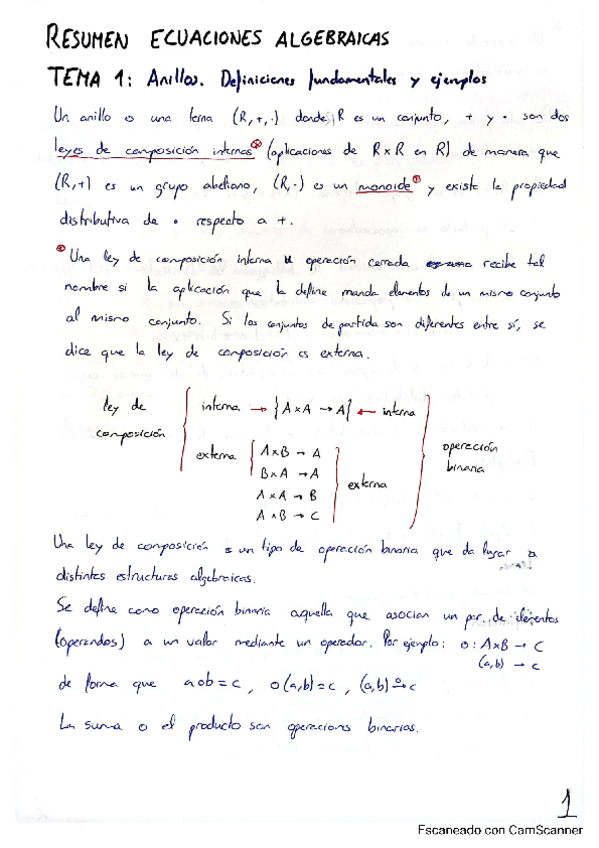 RESUMEN ECUACIONES ALGEBRAICAS
TEMA 1: Anillos. Definiciones fundamentales y ejemplos
Un anillo es una terna (R,+,·) donde R es un conjunto, + y · son dos
leyes de composición internas (aplicaciones de R×R en R) de manera que
(R,+) es un grupo abeliano, (R,·) es un monoide y existe la propiedad
distributiva de · respecto a +.
Una ley de composición interna u operación cerrada recibe tal
nombre si la aplicación que la define manda elementos de un mismo conjunto
al mismo conjunto. Si los conjuntos de partida son diferentes entre sí, se
dice que la ley de composición es externa.
ley de composición { interna → {A×A → A} ← interna } operación binaria
externa { A×B → A
B×A → A
A×A → B
A×B → C } externa
Una ley de composición es un tipo de operación binaria que da lugar a
distintas estructuras algebraicas.
Se define como operación binaria aquella que asocian un par de elementos
(operandos) a un valor mediante un operador. Por ejemplo: o : A×B → C
(a,b) → c
de forma que a o b = c , o(a,b) = c , (a,b) →o c
La suma o el producto son operaciones binarias.
1
Escaneado con CamScanner